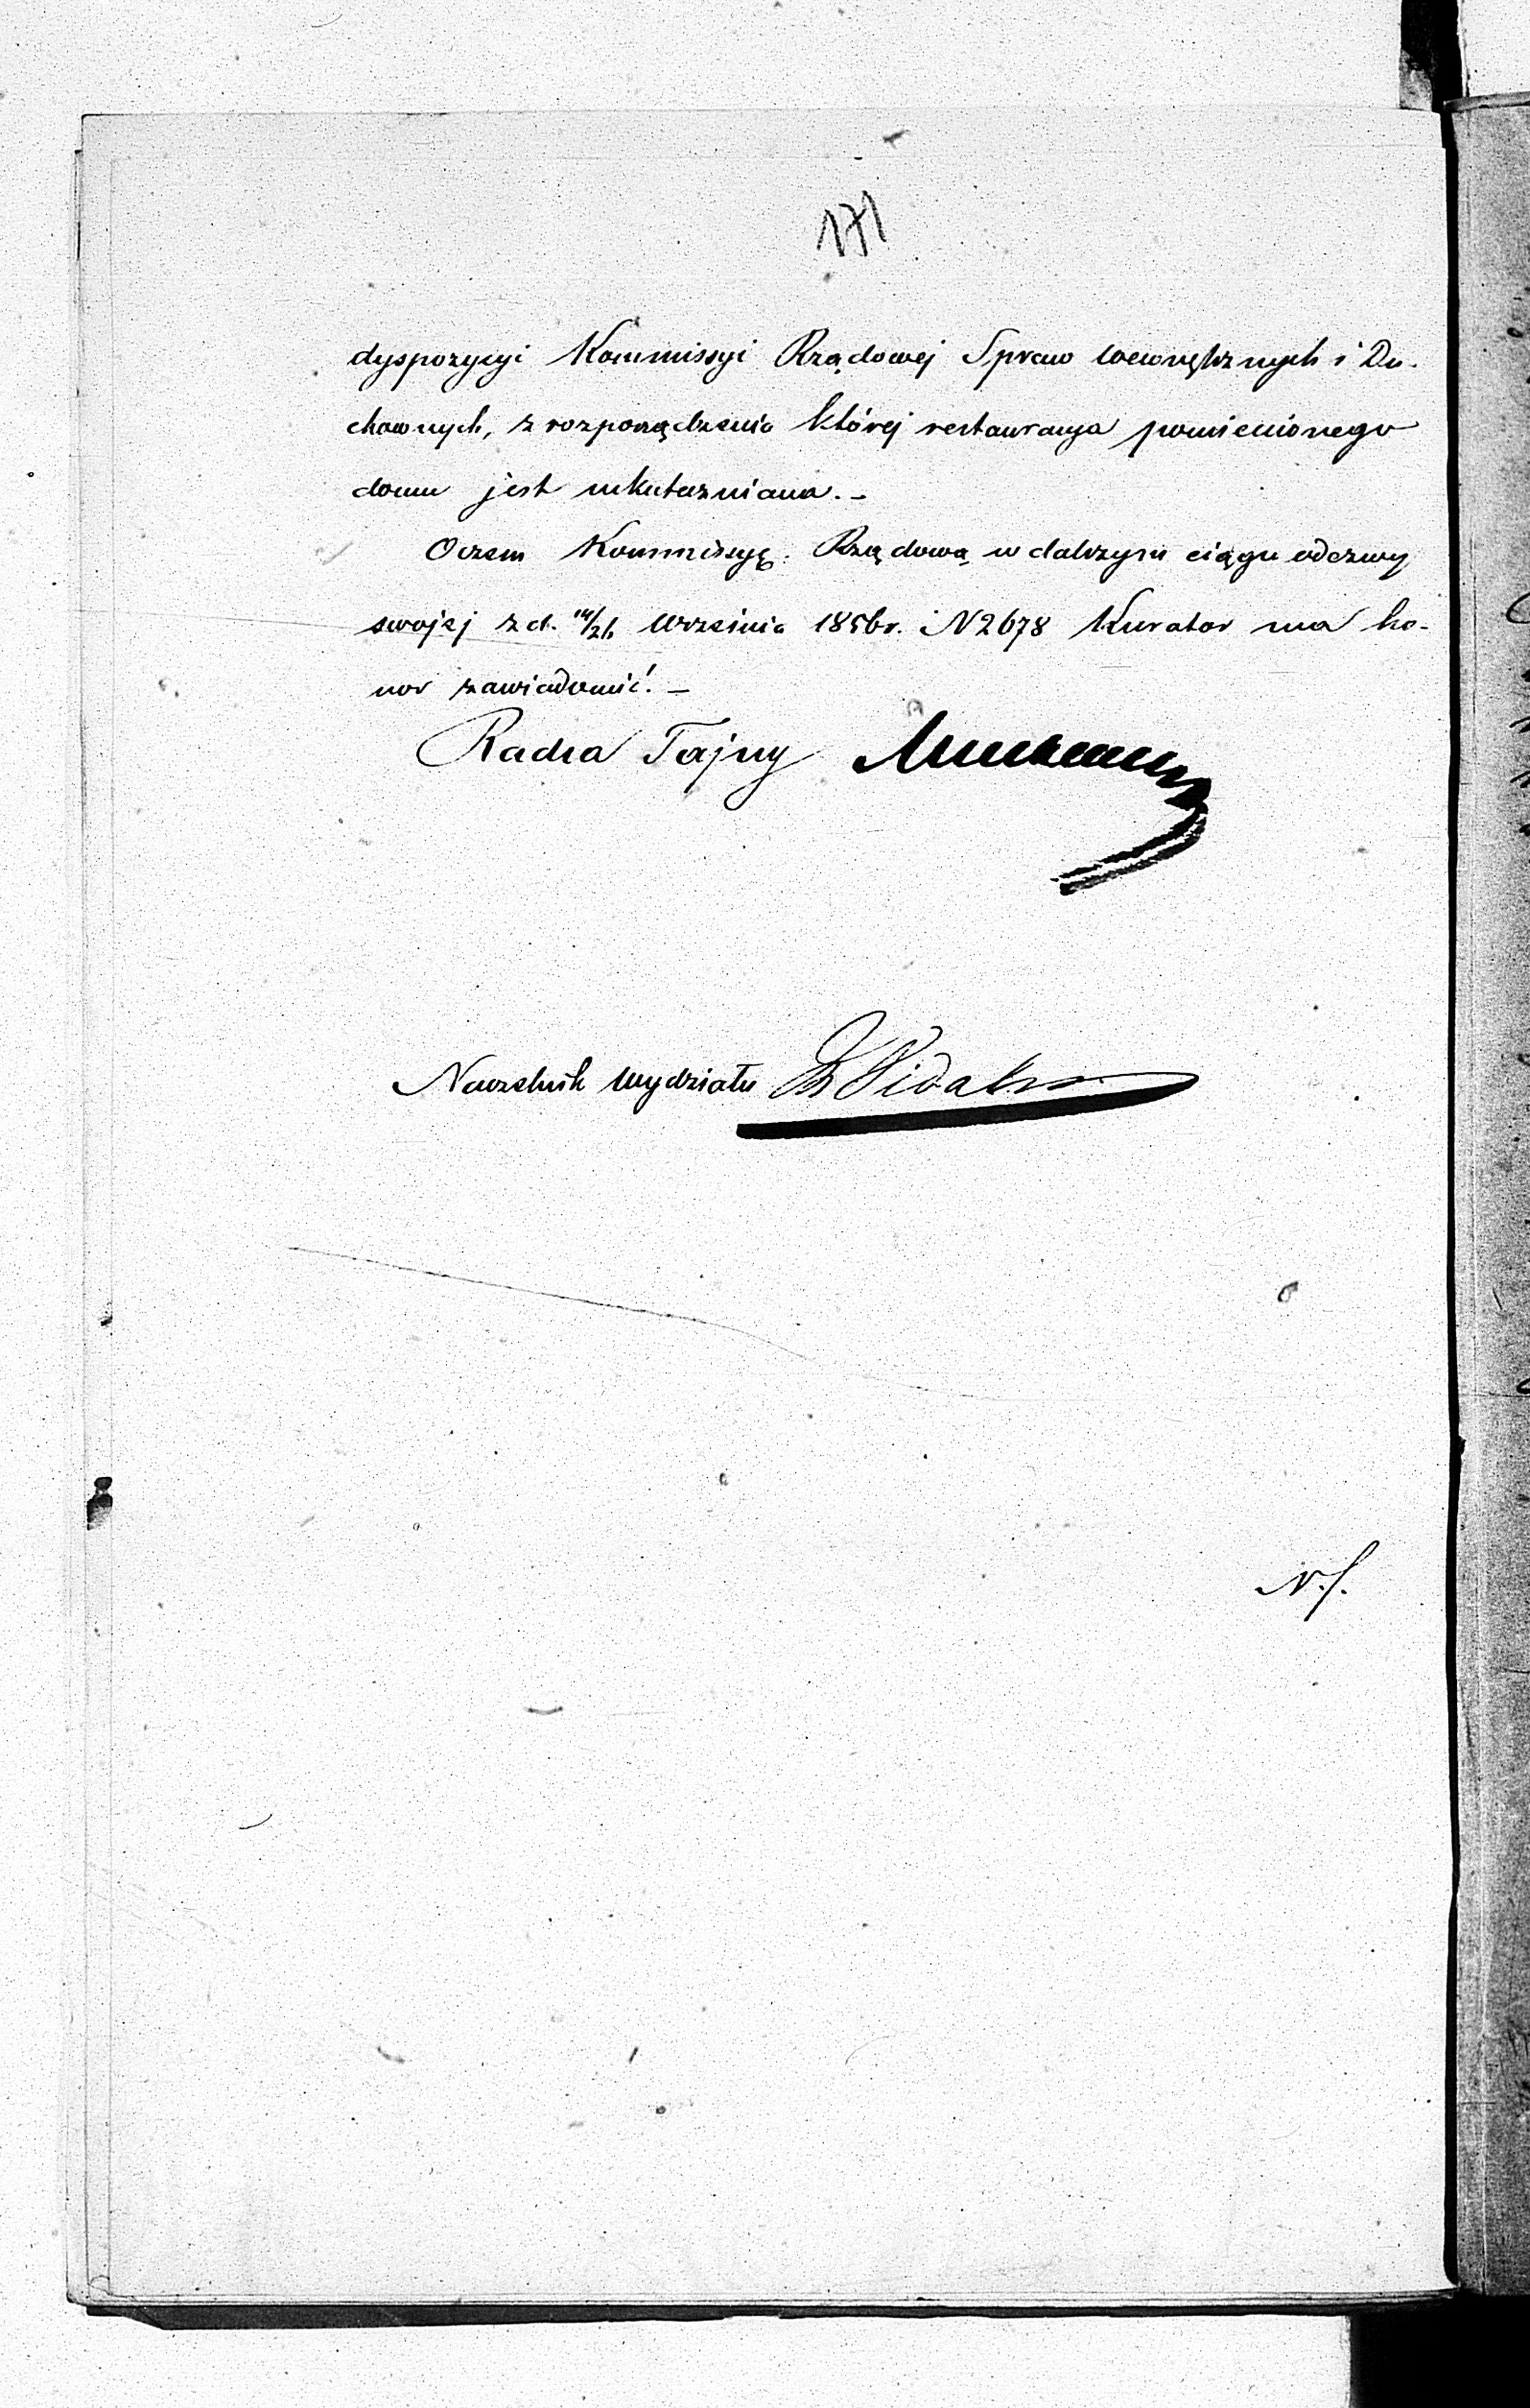 171
dyspozycyi Kommissyi Rządowej Spraw Wewnętrznych i Du-
chownych, z rozporządzenia której restauracya pomienionego
domu jest uskuteczniana. -
O czem Kommissyę Rządową w dalszym ciągu odezwy
swojej z d. 14/26 Września 1856 r. N 2678 Kurator ma ho-
nor zawiadomić. -
Radca Tajny
Naczelnik Wydziału